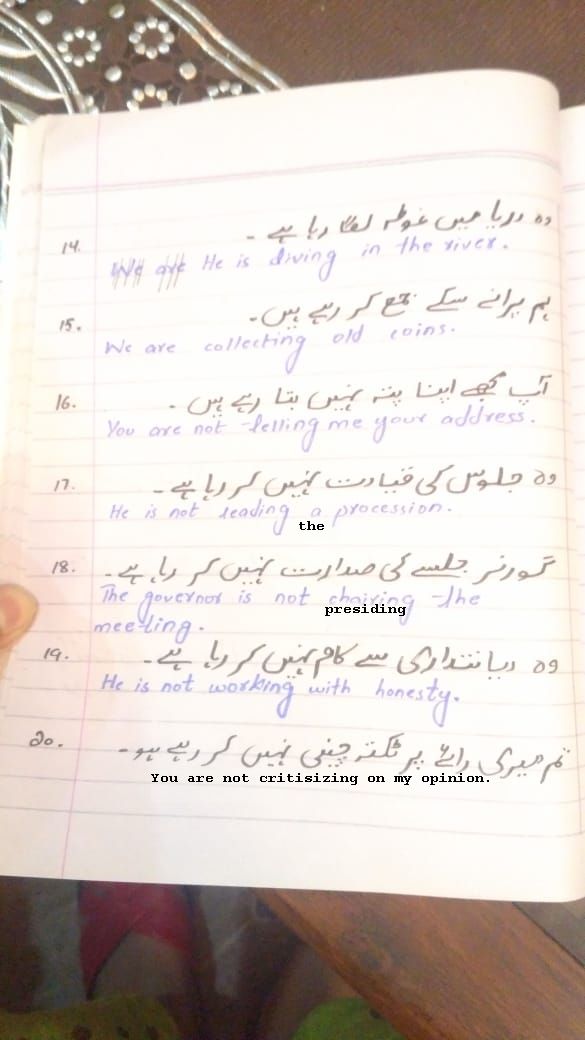 14. وہ دریا میں غوطہ لگا رہا ہے۔
We are He is diving in the river.
15. ہم پرانے سکے جمع کر رہے ہیں۔
We are collecting old coins.
16. آپ مجھے اپنا پتہ نہیں بتا رہے ہیں۔
You are not telling me your address.
17. وہ جلوس کی قیادت نہیں کر رہا ہے۔
He is not leading a procession.
the
18. گورنر جلسے کی صدارت نہیں کر رہا ہے۔
The governor is not chairing the
presiding
meeting.
19. وہ دیانتداری سے کام نہیں کر رہا ہے۔
He is not working with honesty.
20. تم میری رائے پر نکتہ چینی نہیں کر رہے ہو۔
You are not critisizing on my opinion.